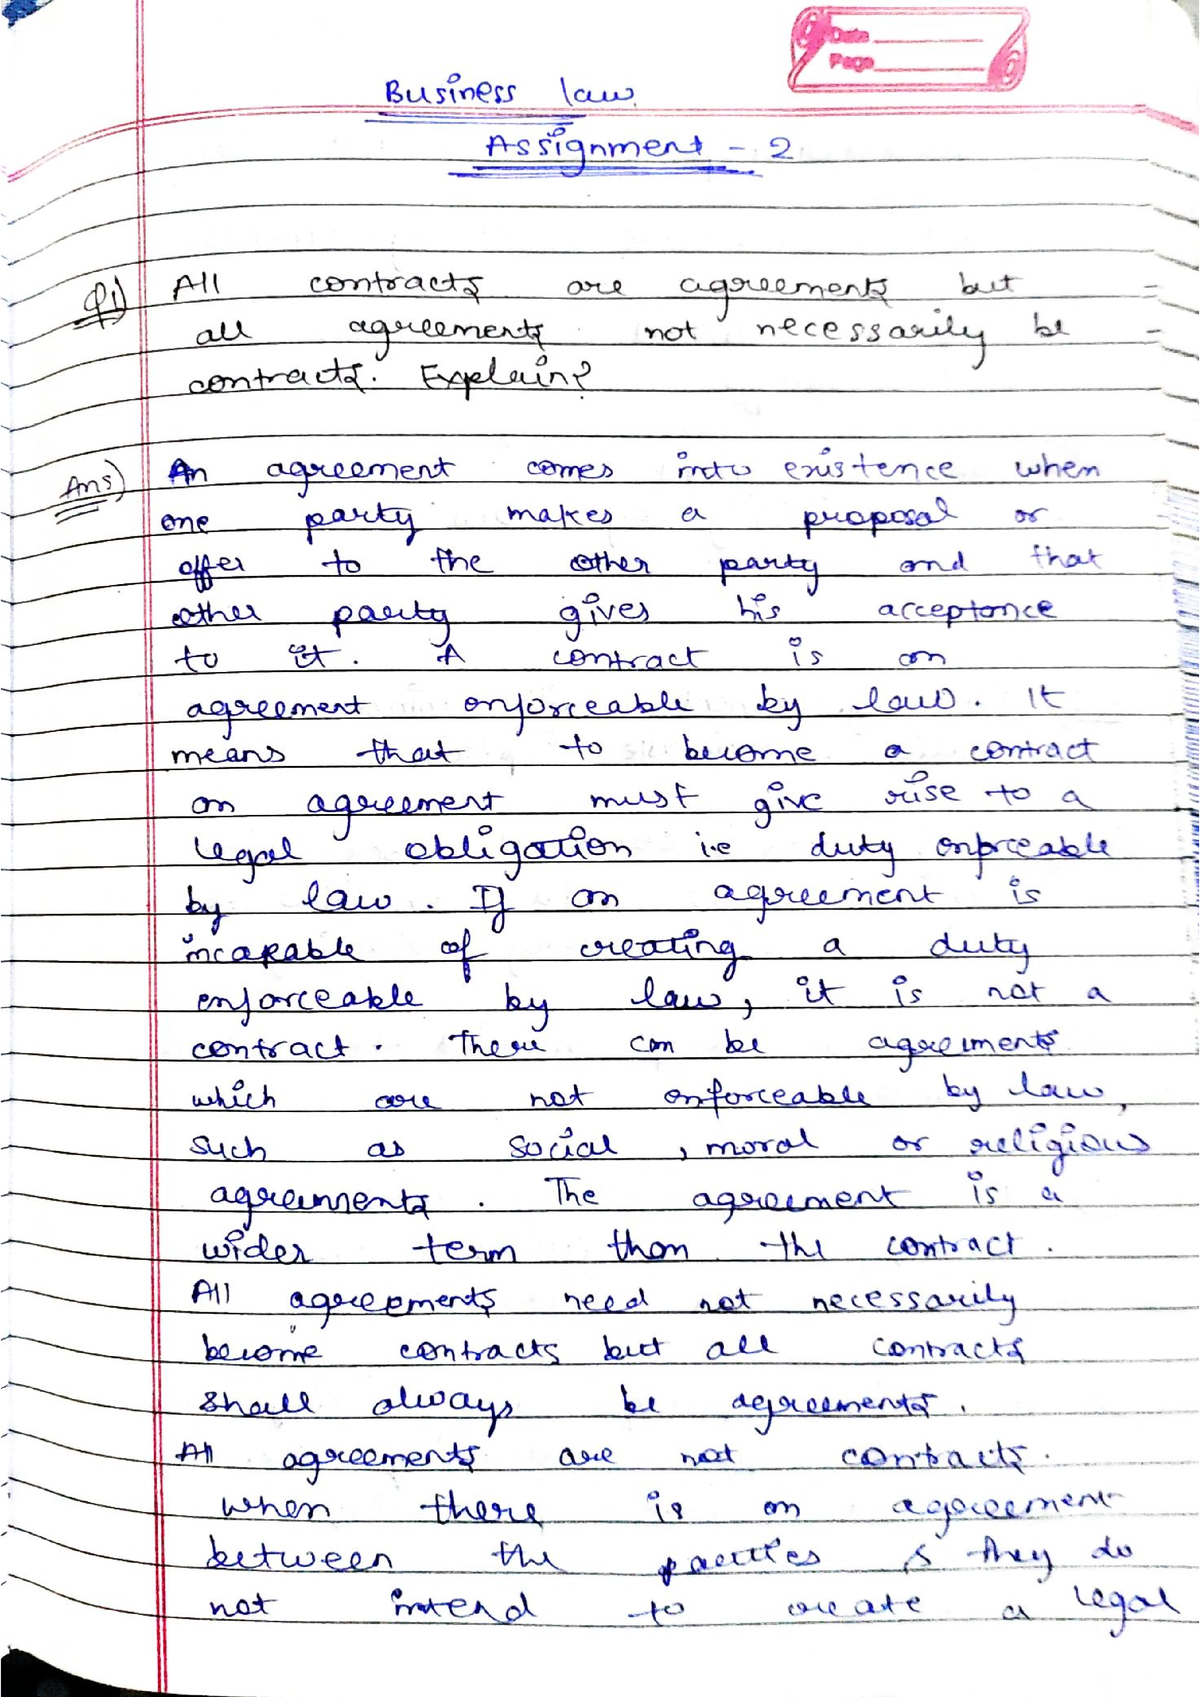 Date
Page
Business law
Assignment - 2
Q1) All contracts are agreements but
all agreements not necessarily be
contracts. Explain?
Ans) An agreement comes into existence when
one party makes a proposal or
offer to the other party and that
other party gives his acceptance
to it. A contract is an
agreement enforceable by law. It
means that to become a contract
an agreement must give rise to a
legal obligation i.e duty enforceable
by law. If an agreement is
incapable of creating a duty
enforceable by law, it is not a
contract. There can be agreements
which are not enforceable by law,
such as social, moral or religious
agreements. The agreement is a
wider term than the contract.
All agreements need not necessarily
become contracts but all contracts
shall always be agreements.
All agreements are not contracts.
when there is an agreement
between the parties & they do
not intend to create a legal